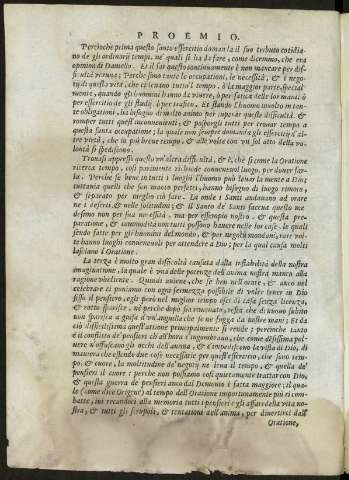 PROEMIO.
Percioche prima questo santo essercitio domanda il suo tributo cotidia
no de gli ordinarij tempi, ne' quali si ha da fare, come dicemmo, che era
opinion di Daniello. Et il far questo continuamente è non mancare per dif
ficultà veruna; Perche sono tante le occupationi, le necessità, & i nego
tij di questa vita, che ci leuano tutto'l tempo, ò la maggior parte, special
mente, quando gli huomini ò uiuono da pouero, ò per fatica delle lor mani ò
per essercitio de gli studij, ò per trafico. Et essendo l'huomo inuolto in tan
te obligationi, ha bisogno di molto animo per superar questa difficultà, &
romper tutti quest'inconuenienti, & posporgli tutti per trouar tempo a
questa santa occupatione; la quale non sempre domanda gli essercitij d'al
tre virtù, che in più breue tempo, & alle volte con vn sol atto della vo
lontà si spediscono.
Trouasi appresso questa vn'altra difficultà, & è, che si come la Oratione
ricerca tempo, così parimente richiede conueneuol luogo, per douer far
si. Perche se bene in tutti i luoghi l'huomo può leuar la mente a Dio;
tuttauia quelli che son manco perfetti, hanno bisogno di luogo rimoto,
& separato per meglio ciò fare. La onde i Santi andauano ad orare
ne i deserti, & nelle solitudini; & il Santo de i Santi faceua questo me
desimo non per sua necessità, ma per essempio nostro. & questa pre
paratione, & commodità non tutti possono hauere nelle lor case, le quali
sendo fatte per gli huomini del mondo, & per negotij mondani, rare vol
te hanno luoghi conueneuoli per attendere a Dio; per la qual causa molti
lasciano l'Oratione.
La terza è molto gran difficultà causata dalla instabilità della nostra
imaginatione, la quale è vna delle potenze dell'anima nostra manco alla
ragione vbidiente. Quindi auiene, che se ben nell'orare, & anco nel
celebrare ci poniamo con ogni fermezza possibile di voler tener in Dio
fisso il pensiero, egli però nel miglior tempo esce di casa senza licenza,
& rotto sparisce, nè perche dopo sia trouato, resta che di nuouo subito
non sparisca a guisa d'vn'anguilla che se ne fugga da nostre mani; Et da
ciò difficilissima quest'attione principalmente si rende; percioche tanto
è il conflito de' pensieri ch'all'hora s'ingombrano, che come densissima pol
uere n'offuscano gli occhi dell'anima, & c'impediscono la vista di Dio,
di maniera che essendo due cose necessarie per quest'essercitio, che sono tem
po, & cuore, la moltitudine de' negotij ne leua il tempo, & quella de'
pensieri il cuore: perche non possiamo così quietamente trattar con Dio,
& questa guerra de' pensieri anco dal Demonio è fatta maggiore; il qua
le (come dice Origene) al tempo dell'Oratione importunamente più ci com
batte, ini recandoci alla memoria tutti i pensieri & gli affari della vita no
stra, & tutti gli scrupoli, & tentationi dell'anima, per diuertirci dall'
Oratione,